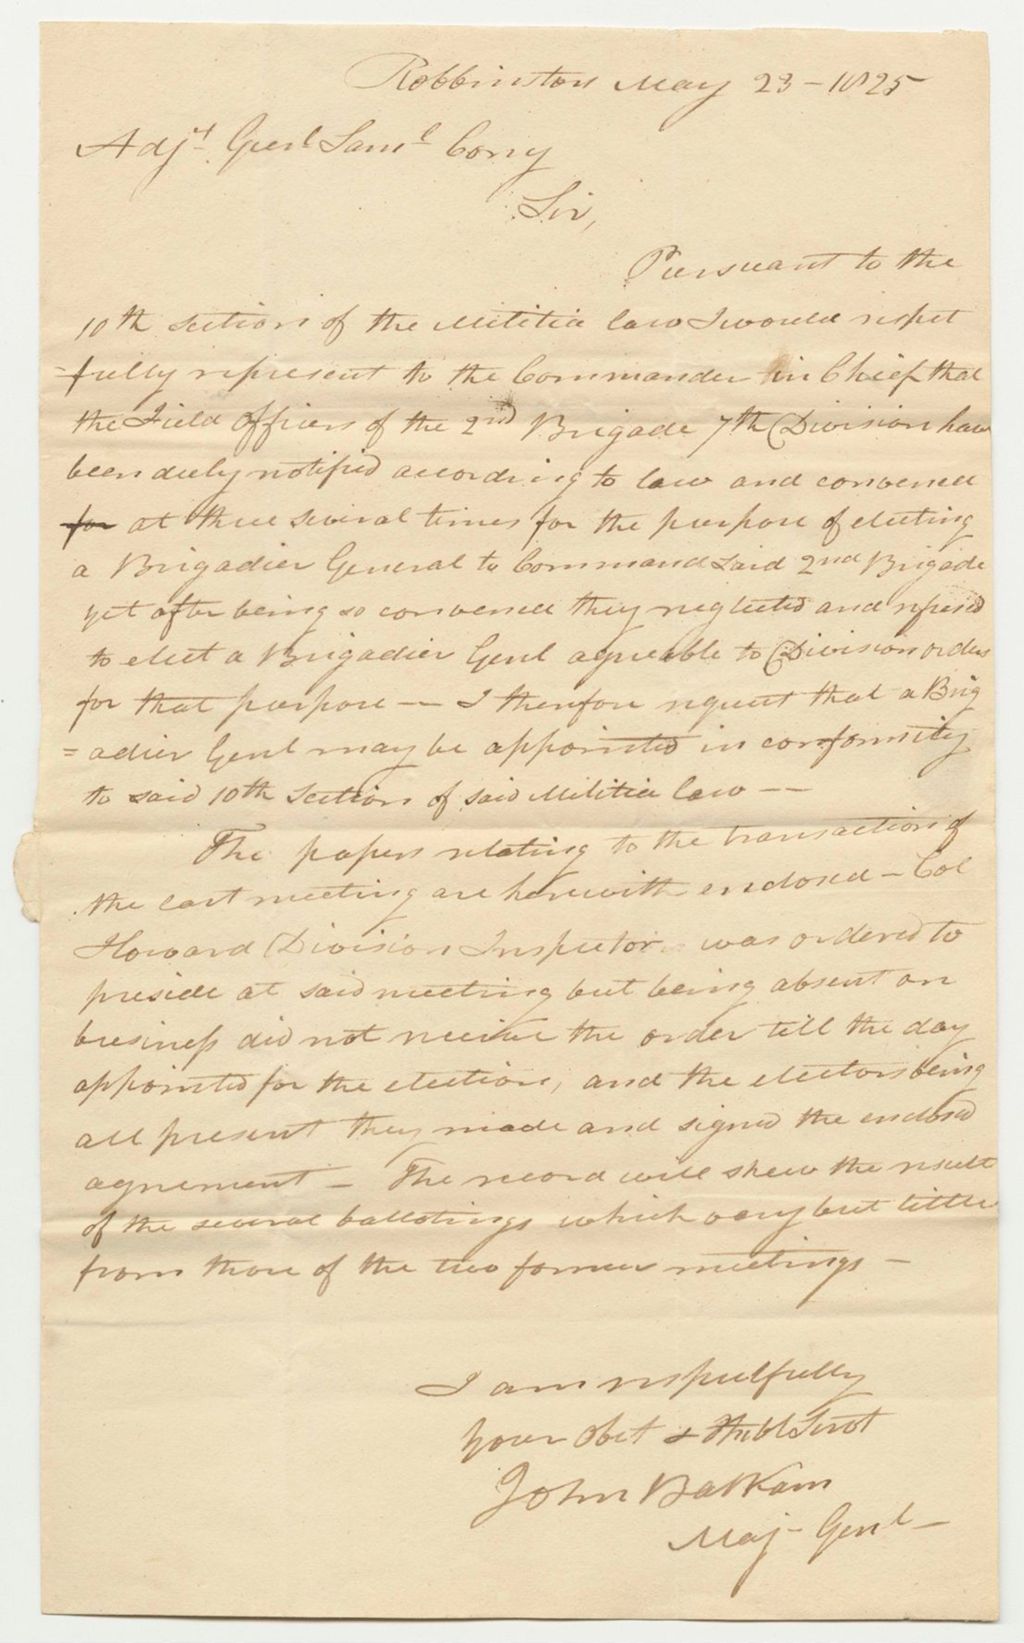 Robbinston May 23 - 1825
Adjt. Genl Saml Cony
Sir,
Pursuant to the
10th Section of the Militia law I would respet
=fully represent to the Commander in Chief that
the Field Officers of the 2nd Brigade 7th Division have
been duly notified according to law and convened
for at three several times for the purpose of electing
a Brigadier General to Command said 2nd Brigade
yet after being so convened they neglected and refused
to elect a Brigadier Genl agreeable to Division orders
for that purpose -- I therefore request that a Brig
=adier Genl may be appointed in conformity
to said 10th Section of said Militia law --
The papers relating to the transaction of
the last meeting are herewith enclosed - Col
Howard Division Inspector was ordered to
preside at said meeting but being absent on
business did not receive the order till the day
appointed for the election, and the electors being
all present they made and signed the enclosed
agreement - The record will shew the result
of the several ballotings which vary but little
from those of the two former meetings -
I am respectfully
your Obet & Hubl Servt
John Balkam
Maj - Genl -